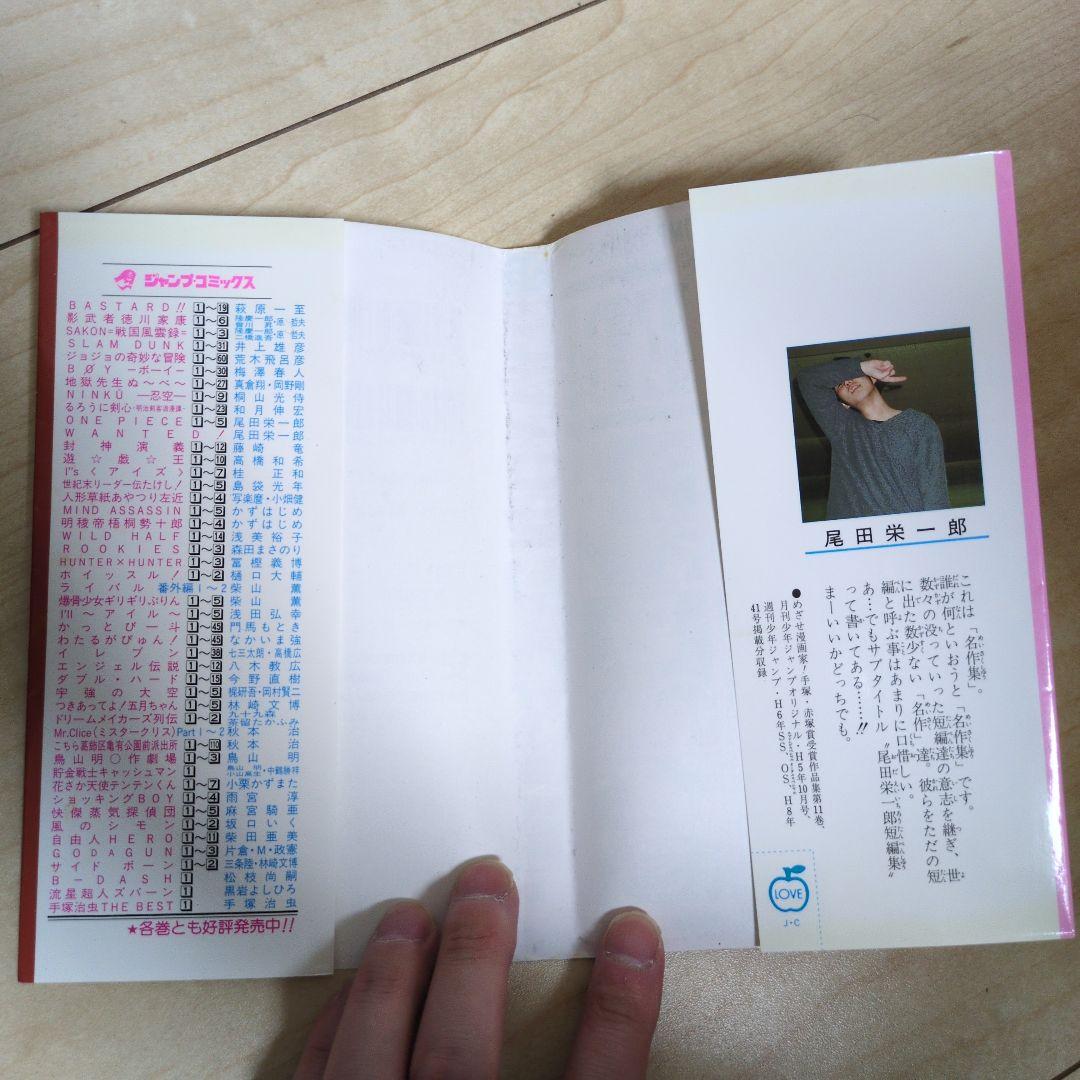 ジャンプ・コミックス
BASTARD!! 1～19 萩原一至
影武者徳川家康 1～6 隆慶一郎・原哲夫 會川昇
SAKON=戦国風雲録= 1～3 隆慶一郎・原哲夫 二橋進吾
SLAM DUNK 1～31 井上雄彦
ジョジョの奇妙な冒険 1～60 荒木飛呂彦
BØY ーボーイー 1～30 梅澤春人
地獄先生ぬ～べ～ 1～27 真倉翔・岡野剛
NINKŪ ―忍空― 1～9 桐山光侍
るろうに剣心・明治剣客浪漫譚・ 1～23 和月伸宏
ONE PIECE 1～5 尾田栄一郎
WANTED! 尾田栄一郎
封神演義 1～12 藤崎竜
遊☆戯☆王 1～10 高橋和希
I"s〈アイズ〉 1～7 桂正和
世紀末リーダー伝たけし! 1～5 島袋光年
人形草紙あやつり左近 1～4 写楽麿・小畑健
MIND ASSASSIN 1～5 かずはじめ
明稜帝梧桐勢十郎 1～4 かずはじめ
WILD HALF 1～14 浅美裕子
ROOKIES 1～3 森田まさのり
HUNTER×HUNTER 1～3 冨樫義博
ホイッスル! 1～2 樋口大輔
ライバル 番外編1～2 柴山薫
爆骨少女ギリギリぷりん 1～5 柴山薫
I'll ～アイル～ 1～5 浅田弘幸
かっとび一斗 1～45 門馬もとき
わたるがぴゅん! 1～45 なかいま強
イレブン 1～38 七三太朗・高橋広
エンジェル伝説 1～12 八木教広
ダブル・ハード 1～15 今野直樹
宇強の大空 1～5 梶研吾・岡村賢二
つきあってよ!五月ちゃん 1～5 林崎文博
ドリームメイカーズ列伝 1～2 九十九森 茶留たかふみ
Mr.Clice(ミスタークリス) Part1～2 秋本治
こちら葛飾区亀有公園前派出所 1～110 秋本治
鳥山明○作劇場 1～3 鳥山明
貯金戦士キャッシュマン 1 鳥山明 小山高生・中鶴勝祥
花さか天使テンテンくん 1～7 小栗かずまた
ショッキングBOY 1～4 雨宮淳
快傑蒸気探偵団 1～5 麻宮騎亜
風のシモン 1～2 坂口いく
自由人HERO 1～11 柴田亜美
GODAGUN 1～3 片倉・M・政憲
サイドボーン 1～2 三条陸・林崎文博
B-DASH 1 松枝尚嗣
流星超人ズバーン 1 黒岩よしひろ
手塚治虫THE BEST 1 手塚治虫
★各巻とも好評発売中!!
尾田栄一郎
これは「名作集」。
誰が何といおうと「名作集」です。
数々の没っていった短編達の意志を継ぎ、世
に出た数少ない「名作」達。彼らをただの短
編と呼ぶ事はあまりに口惜しい。
あ…でもサブタイトル〝尾田栄一郎短編集〟
って書いてある……!!
まーいいかどっちでも。
●めざせ漫画家!手塚・赤塚賞受賞作品集第11巻、
月刊少年ジャンプオリジナル・H5年10月号、
週刊少年ジャンプ・H6年SS、OS、H8年
41号掲載分収録
LOVE
J・C